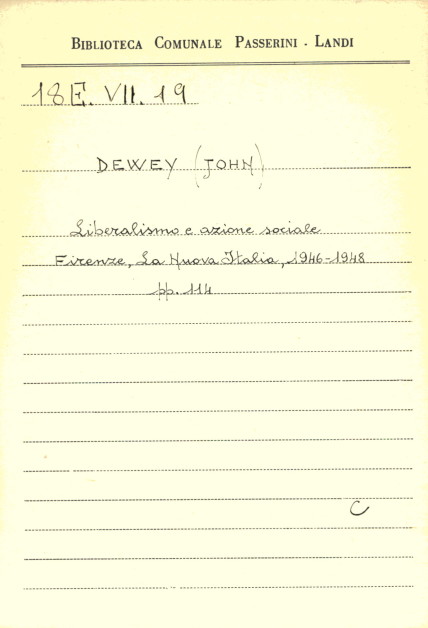 BIBLIOTECA COMUNALE PASSERINI - LANDI
18E. VII. 19
DEWEY (JOHN)
Liberalismo e azione sociale
Firenze, La Nuova Italia, 1946-1948
pp. 114
C